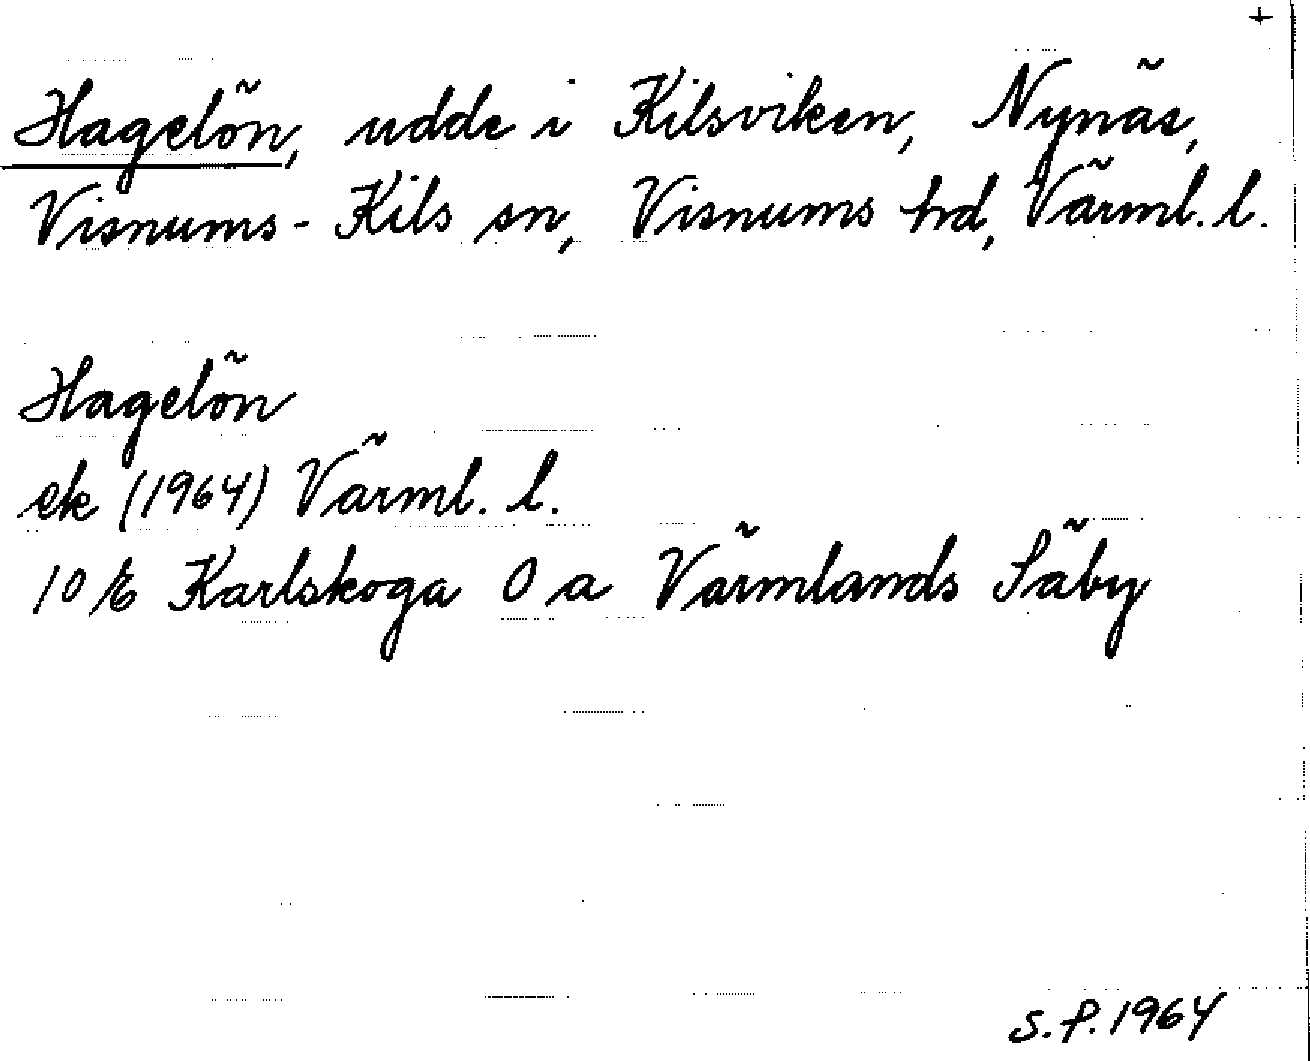 +
Hagelön, udde i Kilsviken, Nynäs,
Visnums-Kils sn, Visnums hd, Värml. l.
Hagelön
ek (1964) Värml. l.
10 E Karlskoga 0 a Värmlands Säby
S.P. 1964